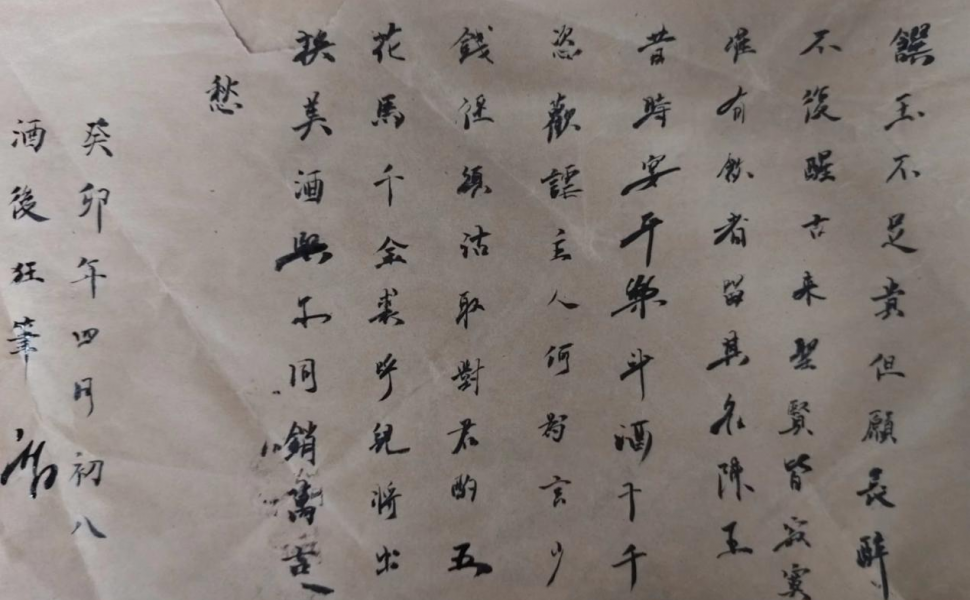 饌玉不足貴但願長醉
不復醒古來聖賢皆寂寞
惟有飲者留其名陳王
昔時宴平樂斗酒十千
恣歡謔主人何為言少
錢径須沽取對君酌五
花馬千金裘呼兒將出
換美酒與尔同銷萬古
愁
癸卯年四月初八
酒後狂筆